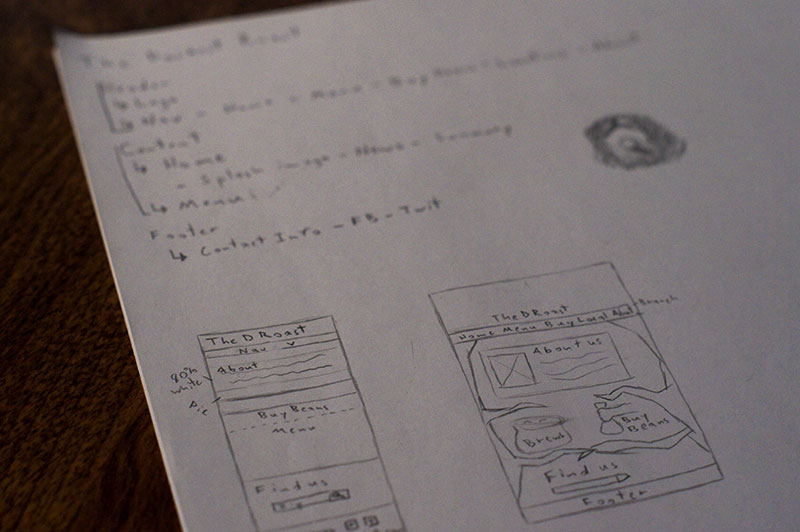 The Desert Roast
Header
↳ Logo
↳ Nav - Home - Menu - Buy Beans - Location - About
Content
↳ Home
- Splash image - News - Summary
↳ Menu:
Footer
↳ Contact Info - FB - Twit
The D Roast
Nav
About
90%
white
Buy Beans
Menu
Find us
The D Roast
Home Menu Buy Local About
Branch
About us
Brews
Buy
Beans
Find us
Footer